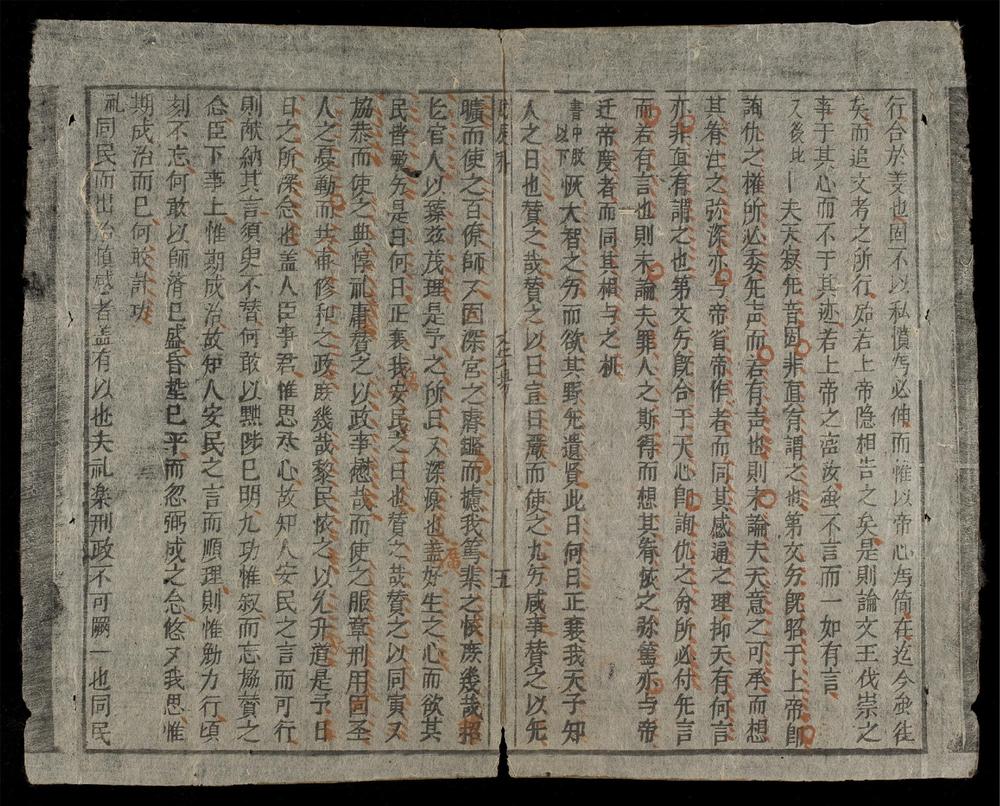 行合於姜也固不以私憤爲必伸而惟以帝心爲简在迄今虽徃
矣而追文考之所行始若上帝隐相告之矣是則論文王伐崇之
事于其心而不于其迹若上帝之啓汝虽不言而一如有言
又後比
夫天寂旡音固非直有謂之也第文匁既昭于上帝即
詢仇之權所必委旡声而若有声也則未論夫天意之可承而想
其眷注之弥深亦与帝省帝作者而同其感通之理抑天有何言
亦非直有謂之也第文匁既合于天心即詢仇之匁所必付旡言
而若有言也則未論夫罪人之斯得而想其眷恢之弥篤亦与帝
迁帝度者而同其相与之机
書中股以下 恢大智之匁而欲其野旡遺賢此日何日正襄我天子知
人之日也賛之哉賛之以日言日嚴而使之九匁咸事賛之以旡
曠而使之百僚師又因深宮之濬鑑而攄我篤棐之忱庶幾哉招
匕官人以臻茲茂理是予之所曰又深願也盖好生之心而欲其
民皆敏匁是日何日正襄我安民之日也賛之哉賛之以同寅又
協恭而使之典惇礼庸賛之以政事懋哉而使之服章刑用固圣
人之憂動而共甫修和之政庶幾哉黎民依之以允升道是予日
日之所深念也盖人臣事君惟思永心故知人安民之言而可行
則献納其言須臾不替何敢以黜陟已明九功惟叙而忘協賛之
念臣下事上惟期成治故知人安民之言而順理則惟勤力行頃
刻不忘何敢以師濟已盛昏垫已平而忽弼成之念悠又我思惟
期成治而已何敢計功
礼同民而出治慎感者盖有以也夫礼楽刑政不可闕一也同民
五